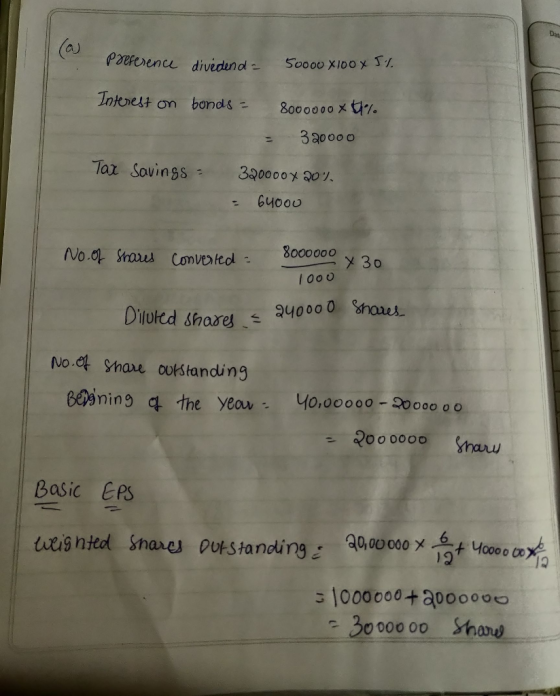 (a)
Preference dividend = 50000 x 100 x 5%
Interest on bonds = 8000000 x 4%
= 320000
Tax Savings = 320000 x 20%
= 64000
No. of Shares Converted = 8000000 / 1000 x 30
Diluted shares = 240000 Shares
No. of Share outstanding
Begining of the year = 40,00000 - 2000000
= 2000000 Share
Basic EPS
Weighted Shares Outstanding = 20,00000 x 6/12 + 4000000 x 6/12
= 1000000 + 2000000
= 3000000 Share